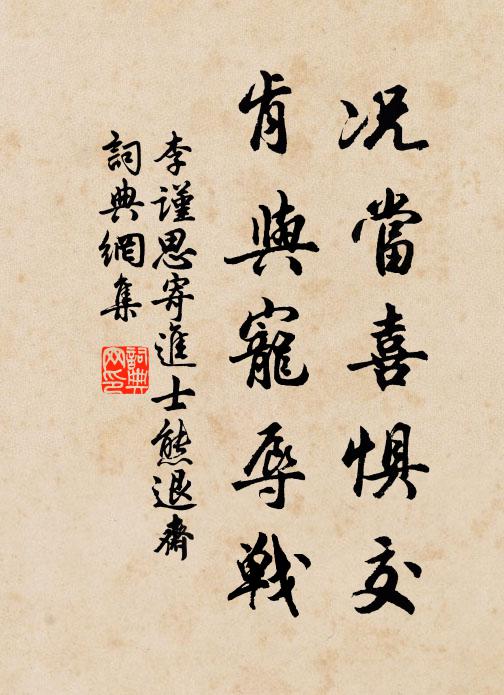 况當喜惧交
肯與寵辱戰
李謹思寄進士熊退齋
詞典網集
詞典網印